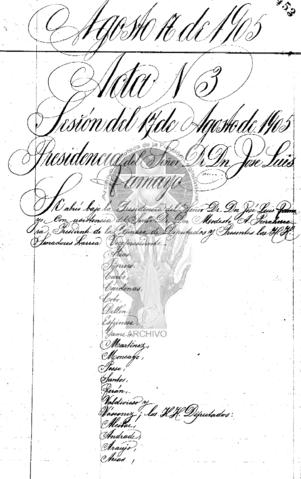 453
Agosto 17 de 1905
Acta N 3
Sesión del 17 de Agosto de 1905
Presidencia del Señor Dr. Dn José Luis
Tamayo
Se abrió bajo la Presidencia del Señor Dr. Dn José Luis Tama
yo, con asistencia del Señor Dr. Dn Modesto A. Peñaherre
ra, Presidente de la Cámara de Diputados y Presentes los H.H.
Senadores Larrea Vicepresidente.
Cárdenas.
Cobo.
Dillon
Espinosa
ARCHIVO
Martínez,
Moncayo,
Pozo,
Santos.
Terán,
Valdivieso y
Vásconez; los H.H. Diputados:
Andrade,
Araujo,
Arias,